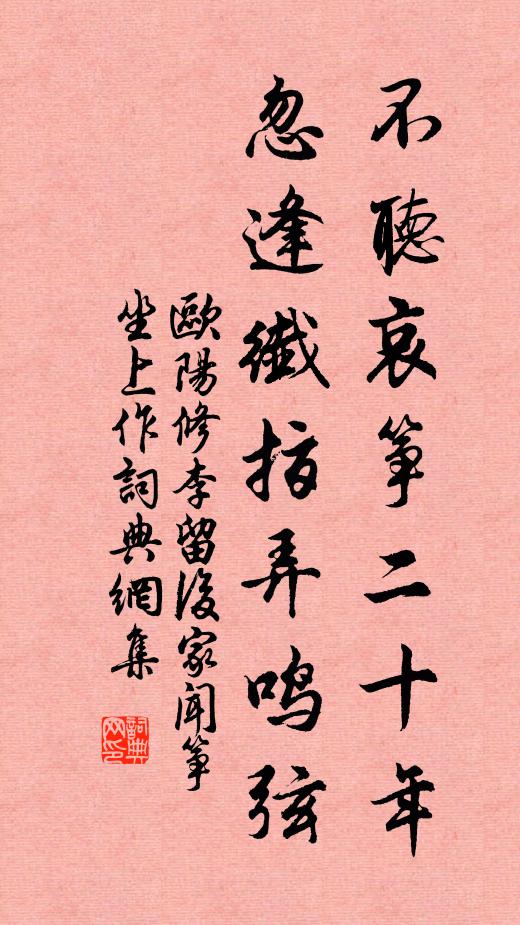 不聽哀筝二十年
忽逢纖指弄鸣弦
歐陽修李留後家聞筝
坐上作詞典網集
詞典网印